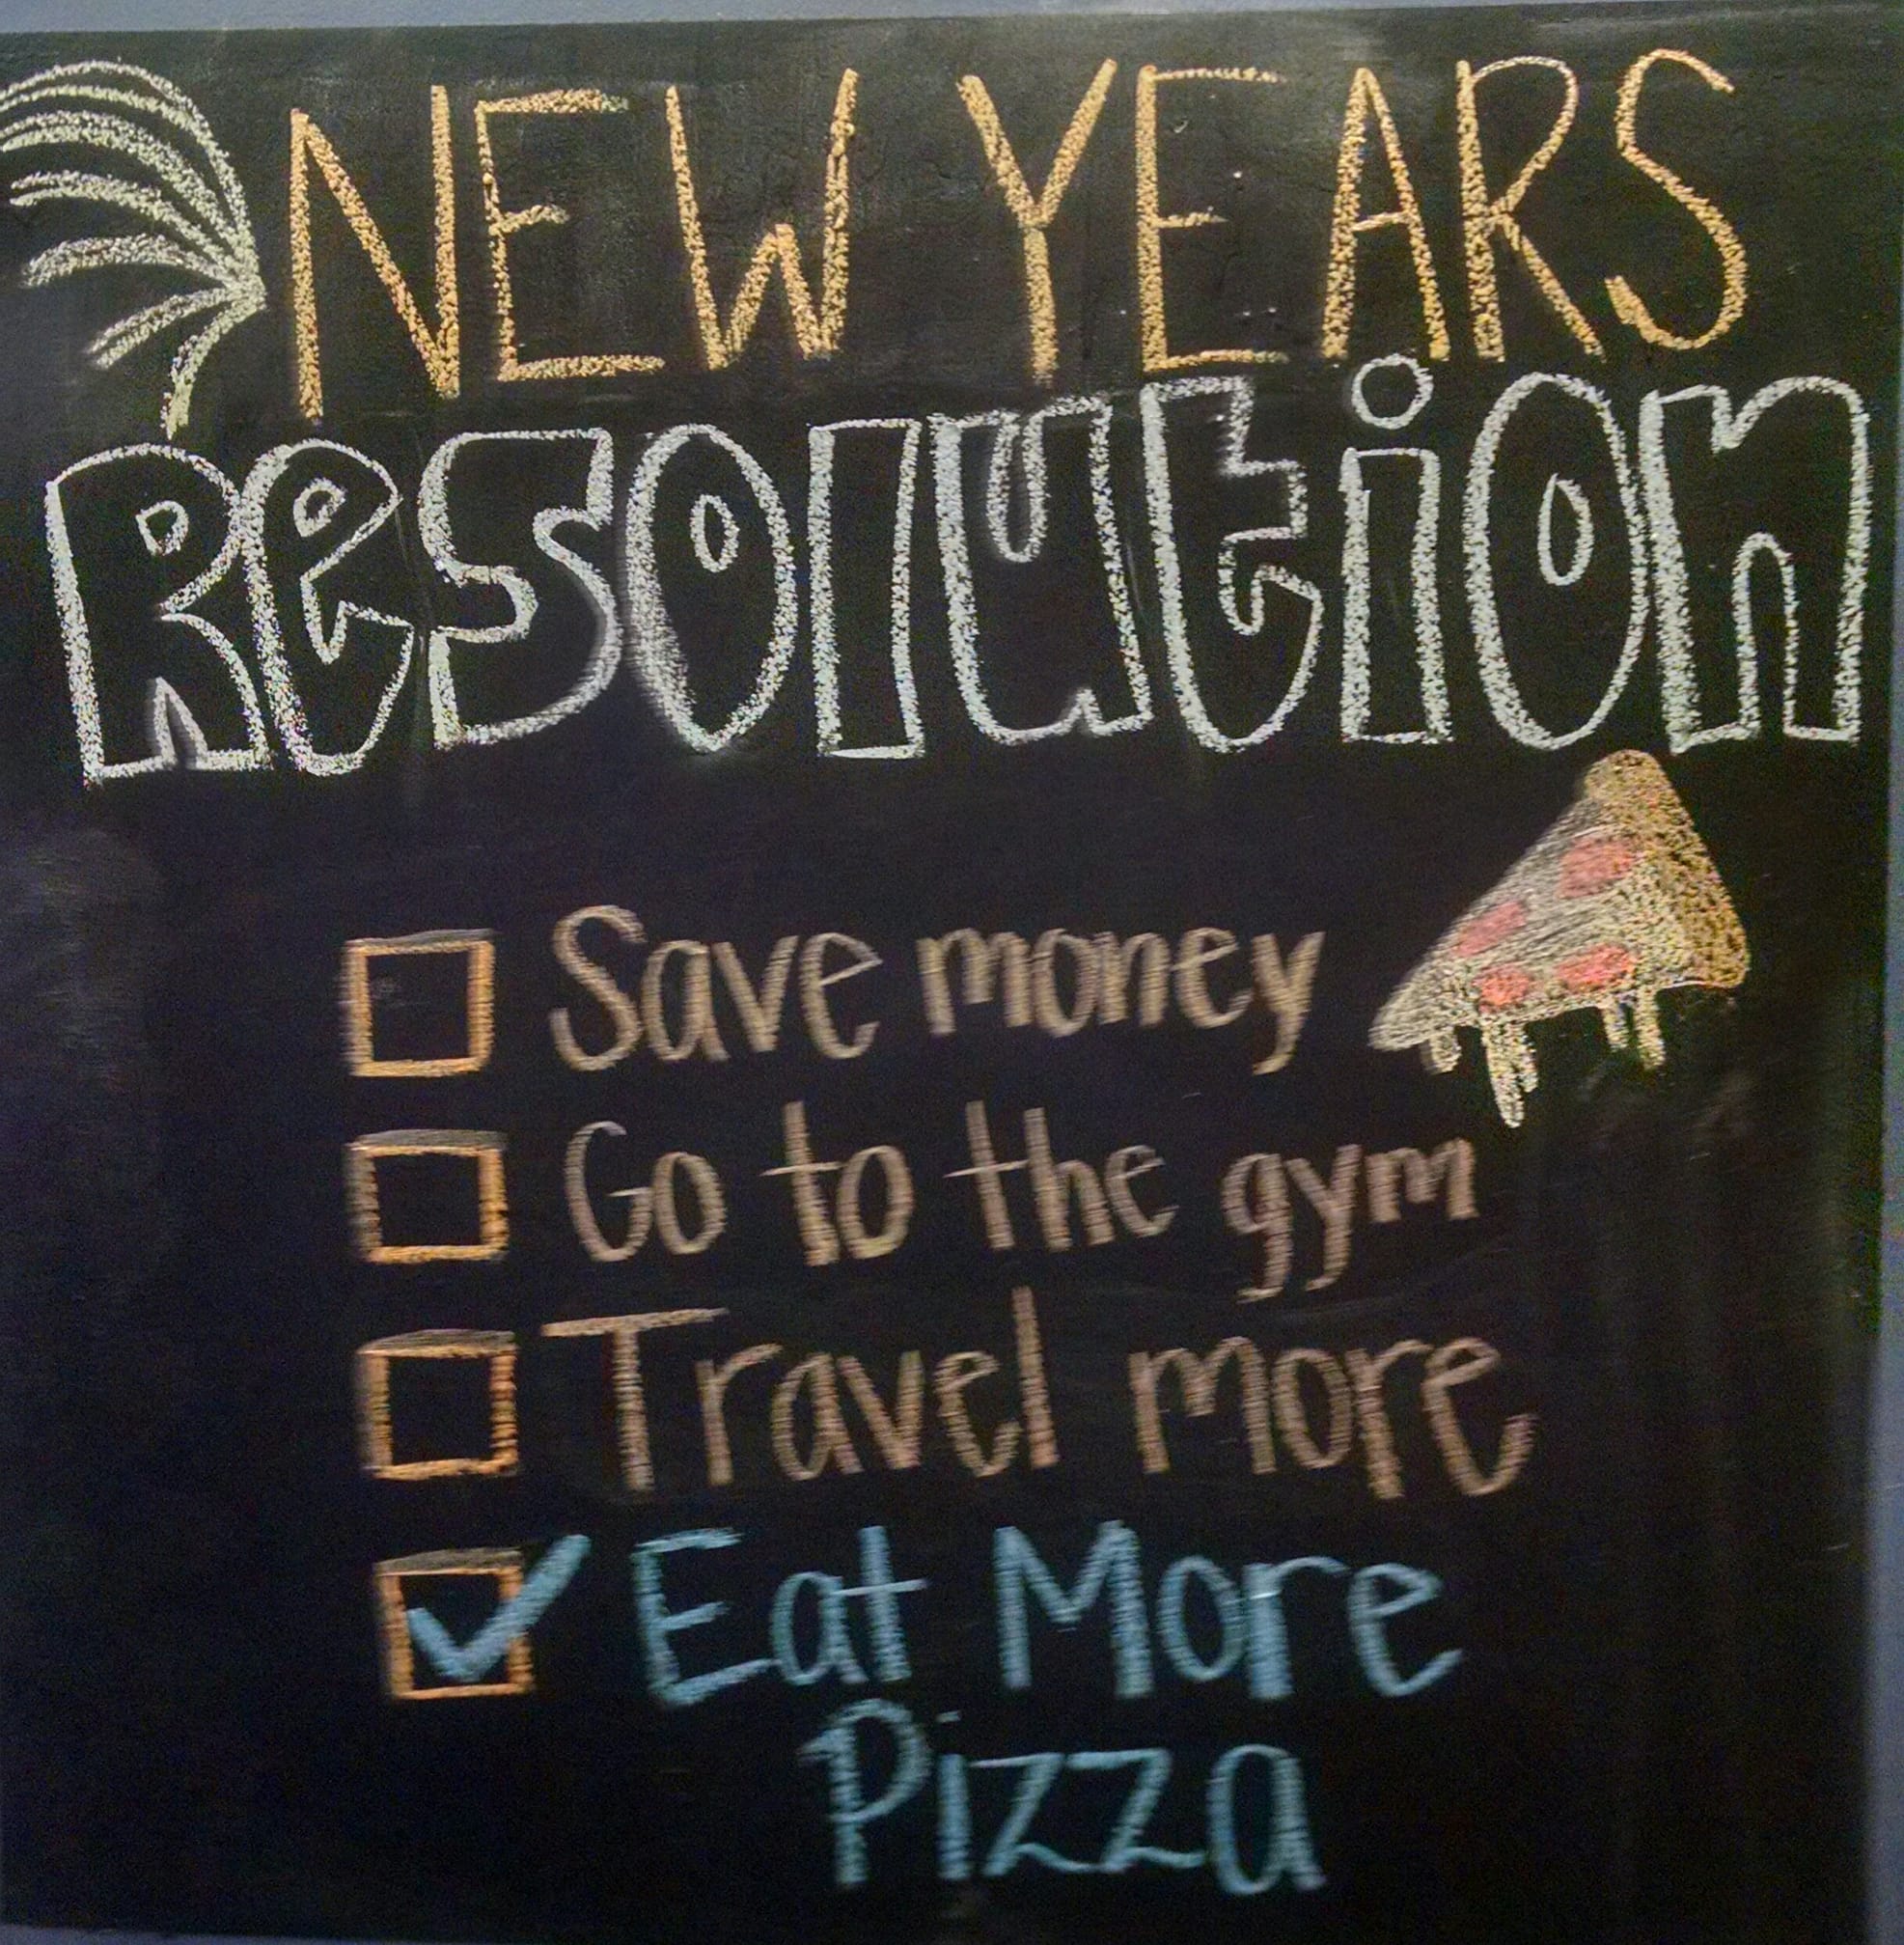 NEW YEARS
Resolution
Save money
Go to the gym
Travel more
Eat More
Pizza